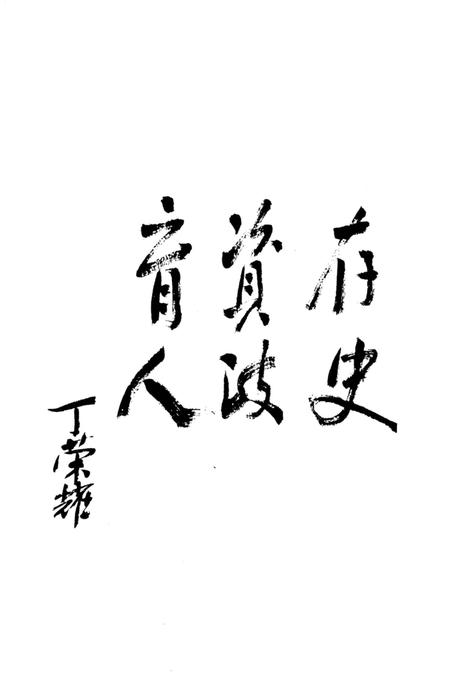 存史
資政
育人
丁荣耀